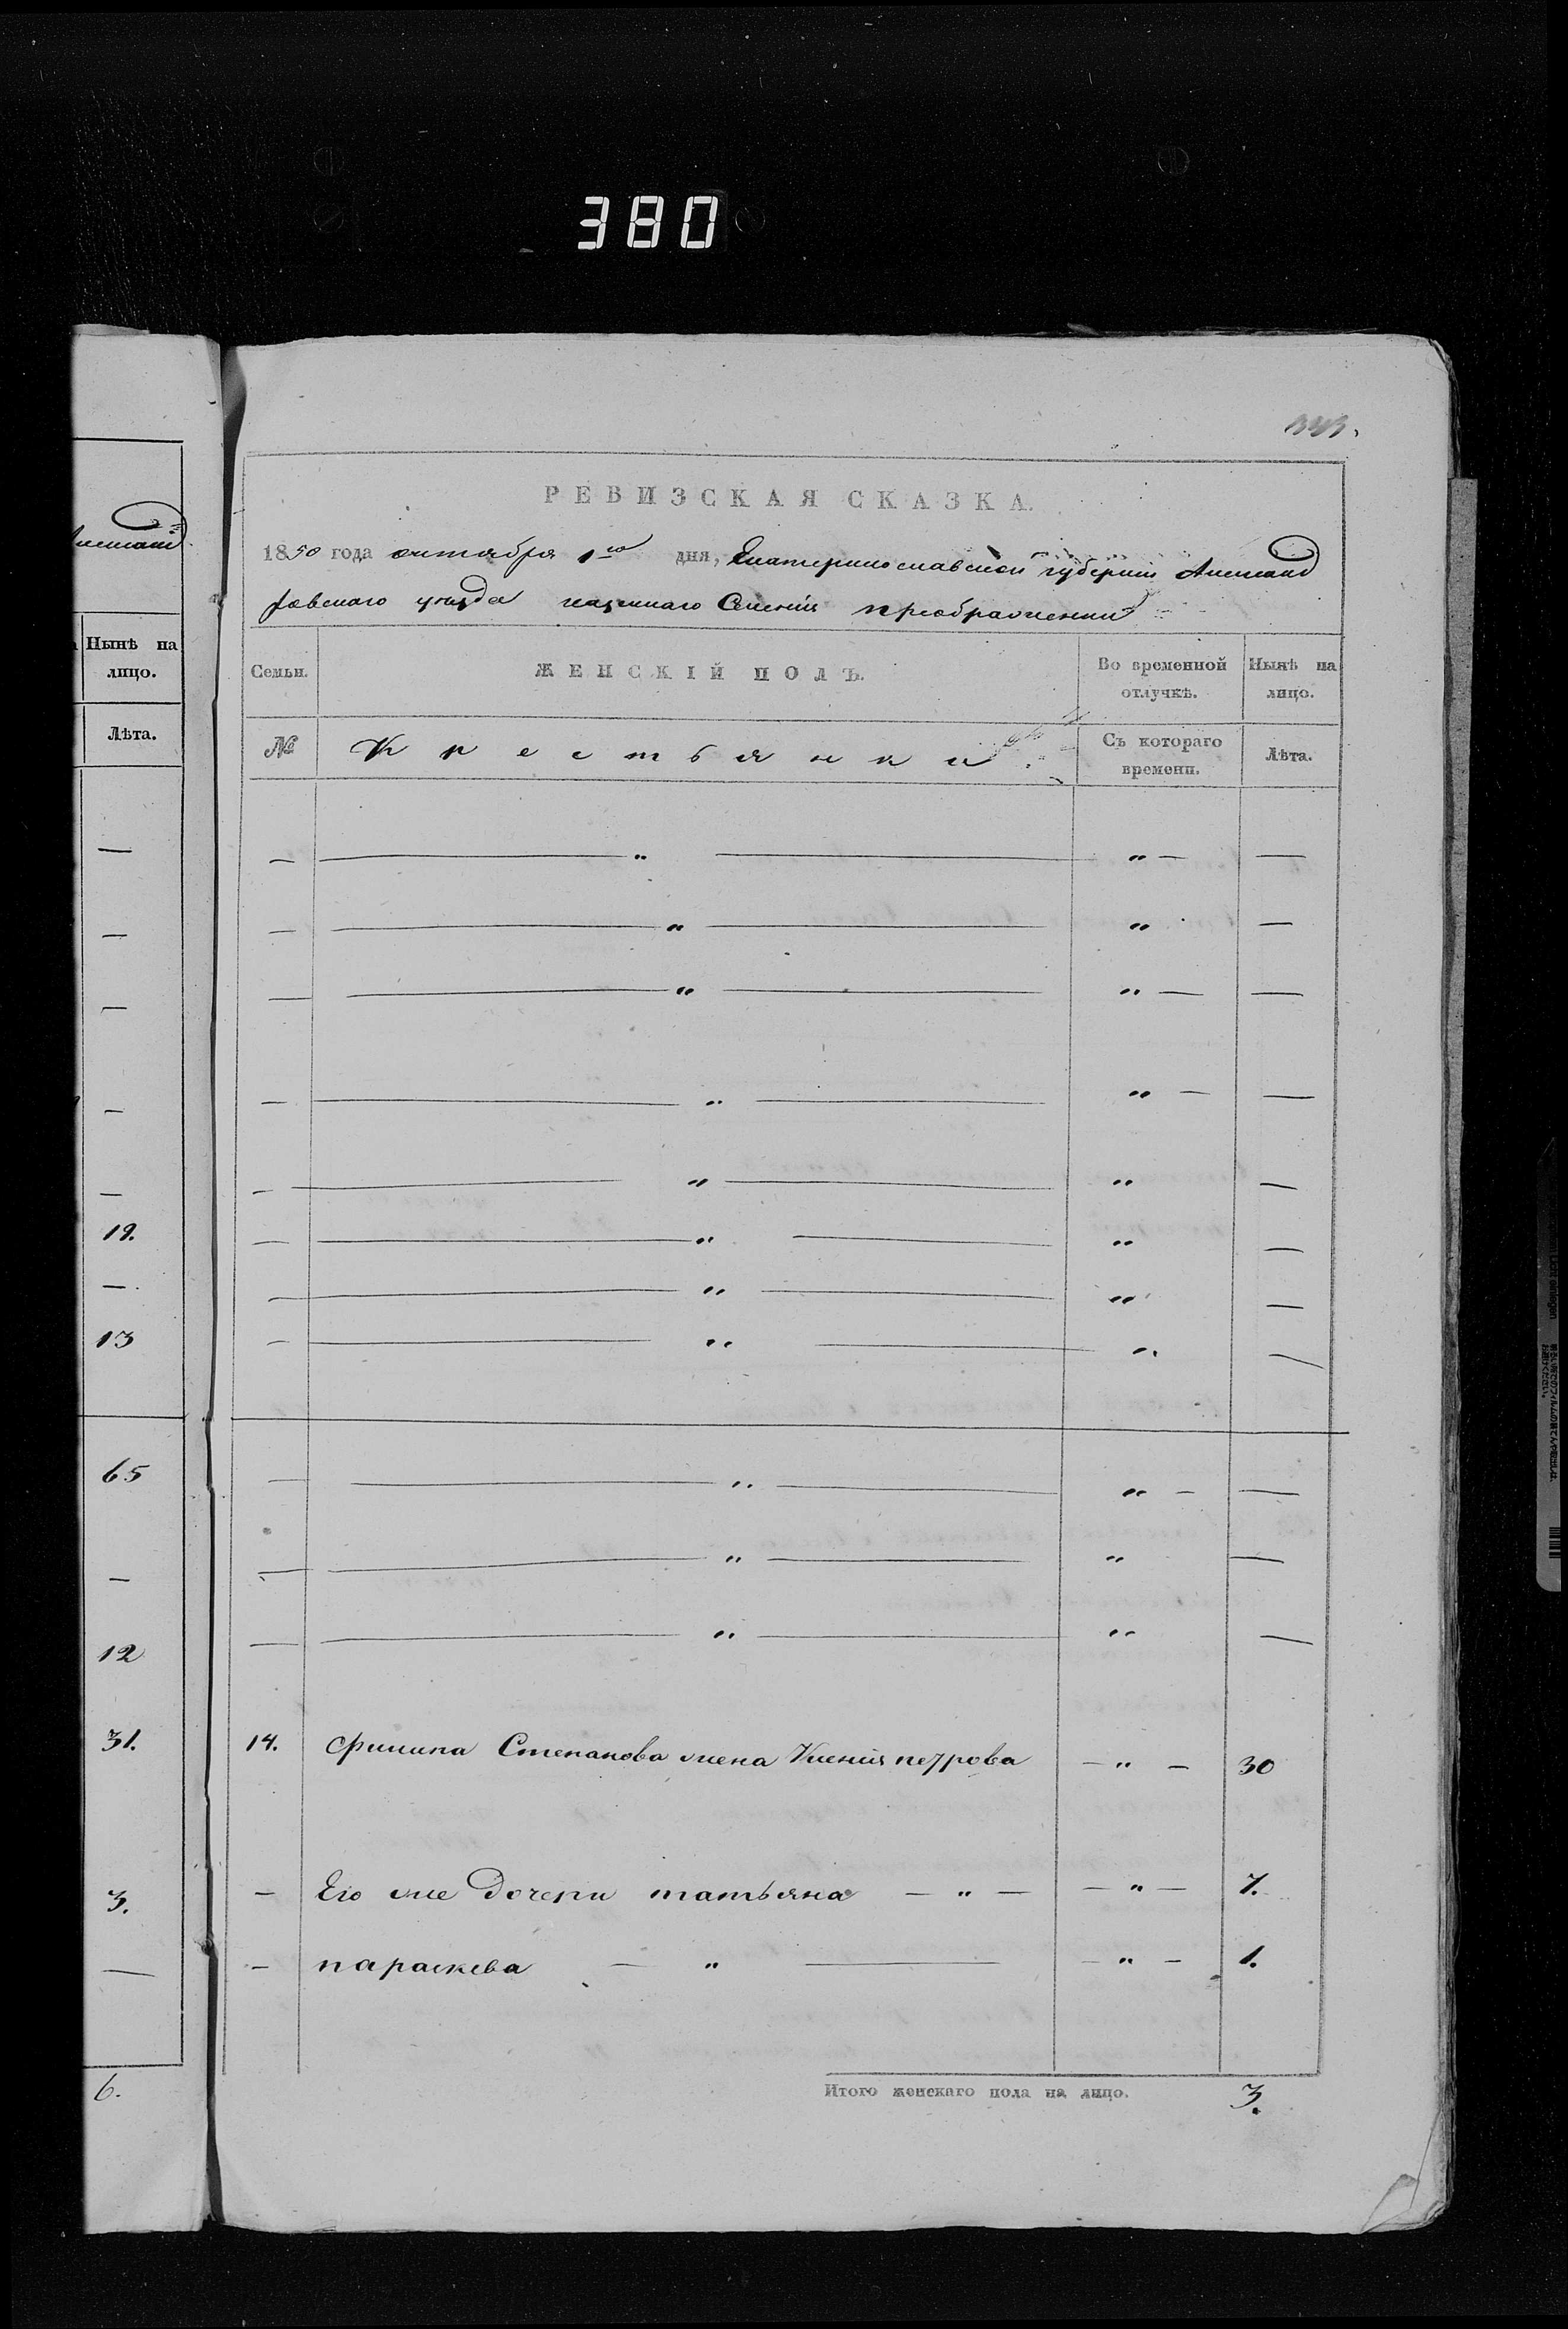 380
343.
РЕВИЗСКАЯ СКАЗКА.
1850 года октября 1го дня, Екатеринославской губерніи Александ
ровскаго уѣзда казеннаго Селенія преображенки
Александ
Нынѣ на
лицо.
Лѣта.
—
—
—
—
—
19.
—
13
65
—
12
31.
3.
—
6.
Семьи. ЖЕНСКІЙ ПОЛЪ. Во временной отлучкѣ. Нынѣ на лицо.
№ Крестьянки Съ котораго времени. Лѣта.
— — „ — „ — —
— — „ — „ —
— — „ — „ — —
— — „ — „ — —
— — „ — „ —
— — „ — „ —
— — „ — „ —
— — „ — „ —
— — „ — „ — —
— — „ — „ —
— — „ — „ —
14. Филипа Степанова жена Ксенія петрова — „ — 30
— Его же дочери татьяна — „ — — „ — 7.
— параскева — „ — — „ — 1.
Итого женскаго пола на лицо. 3.